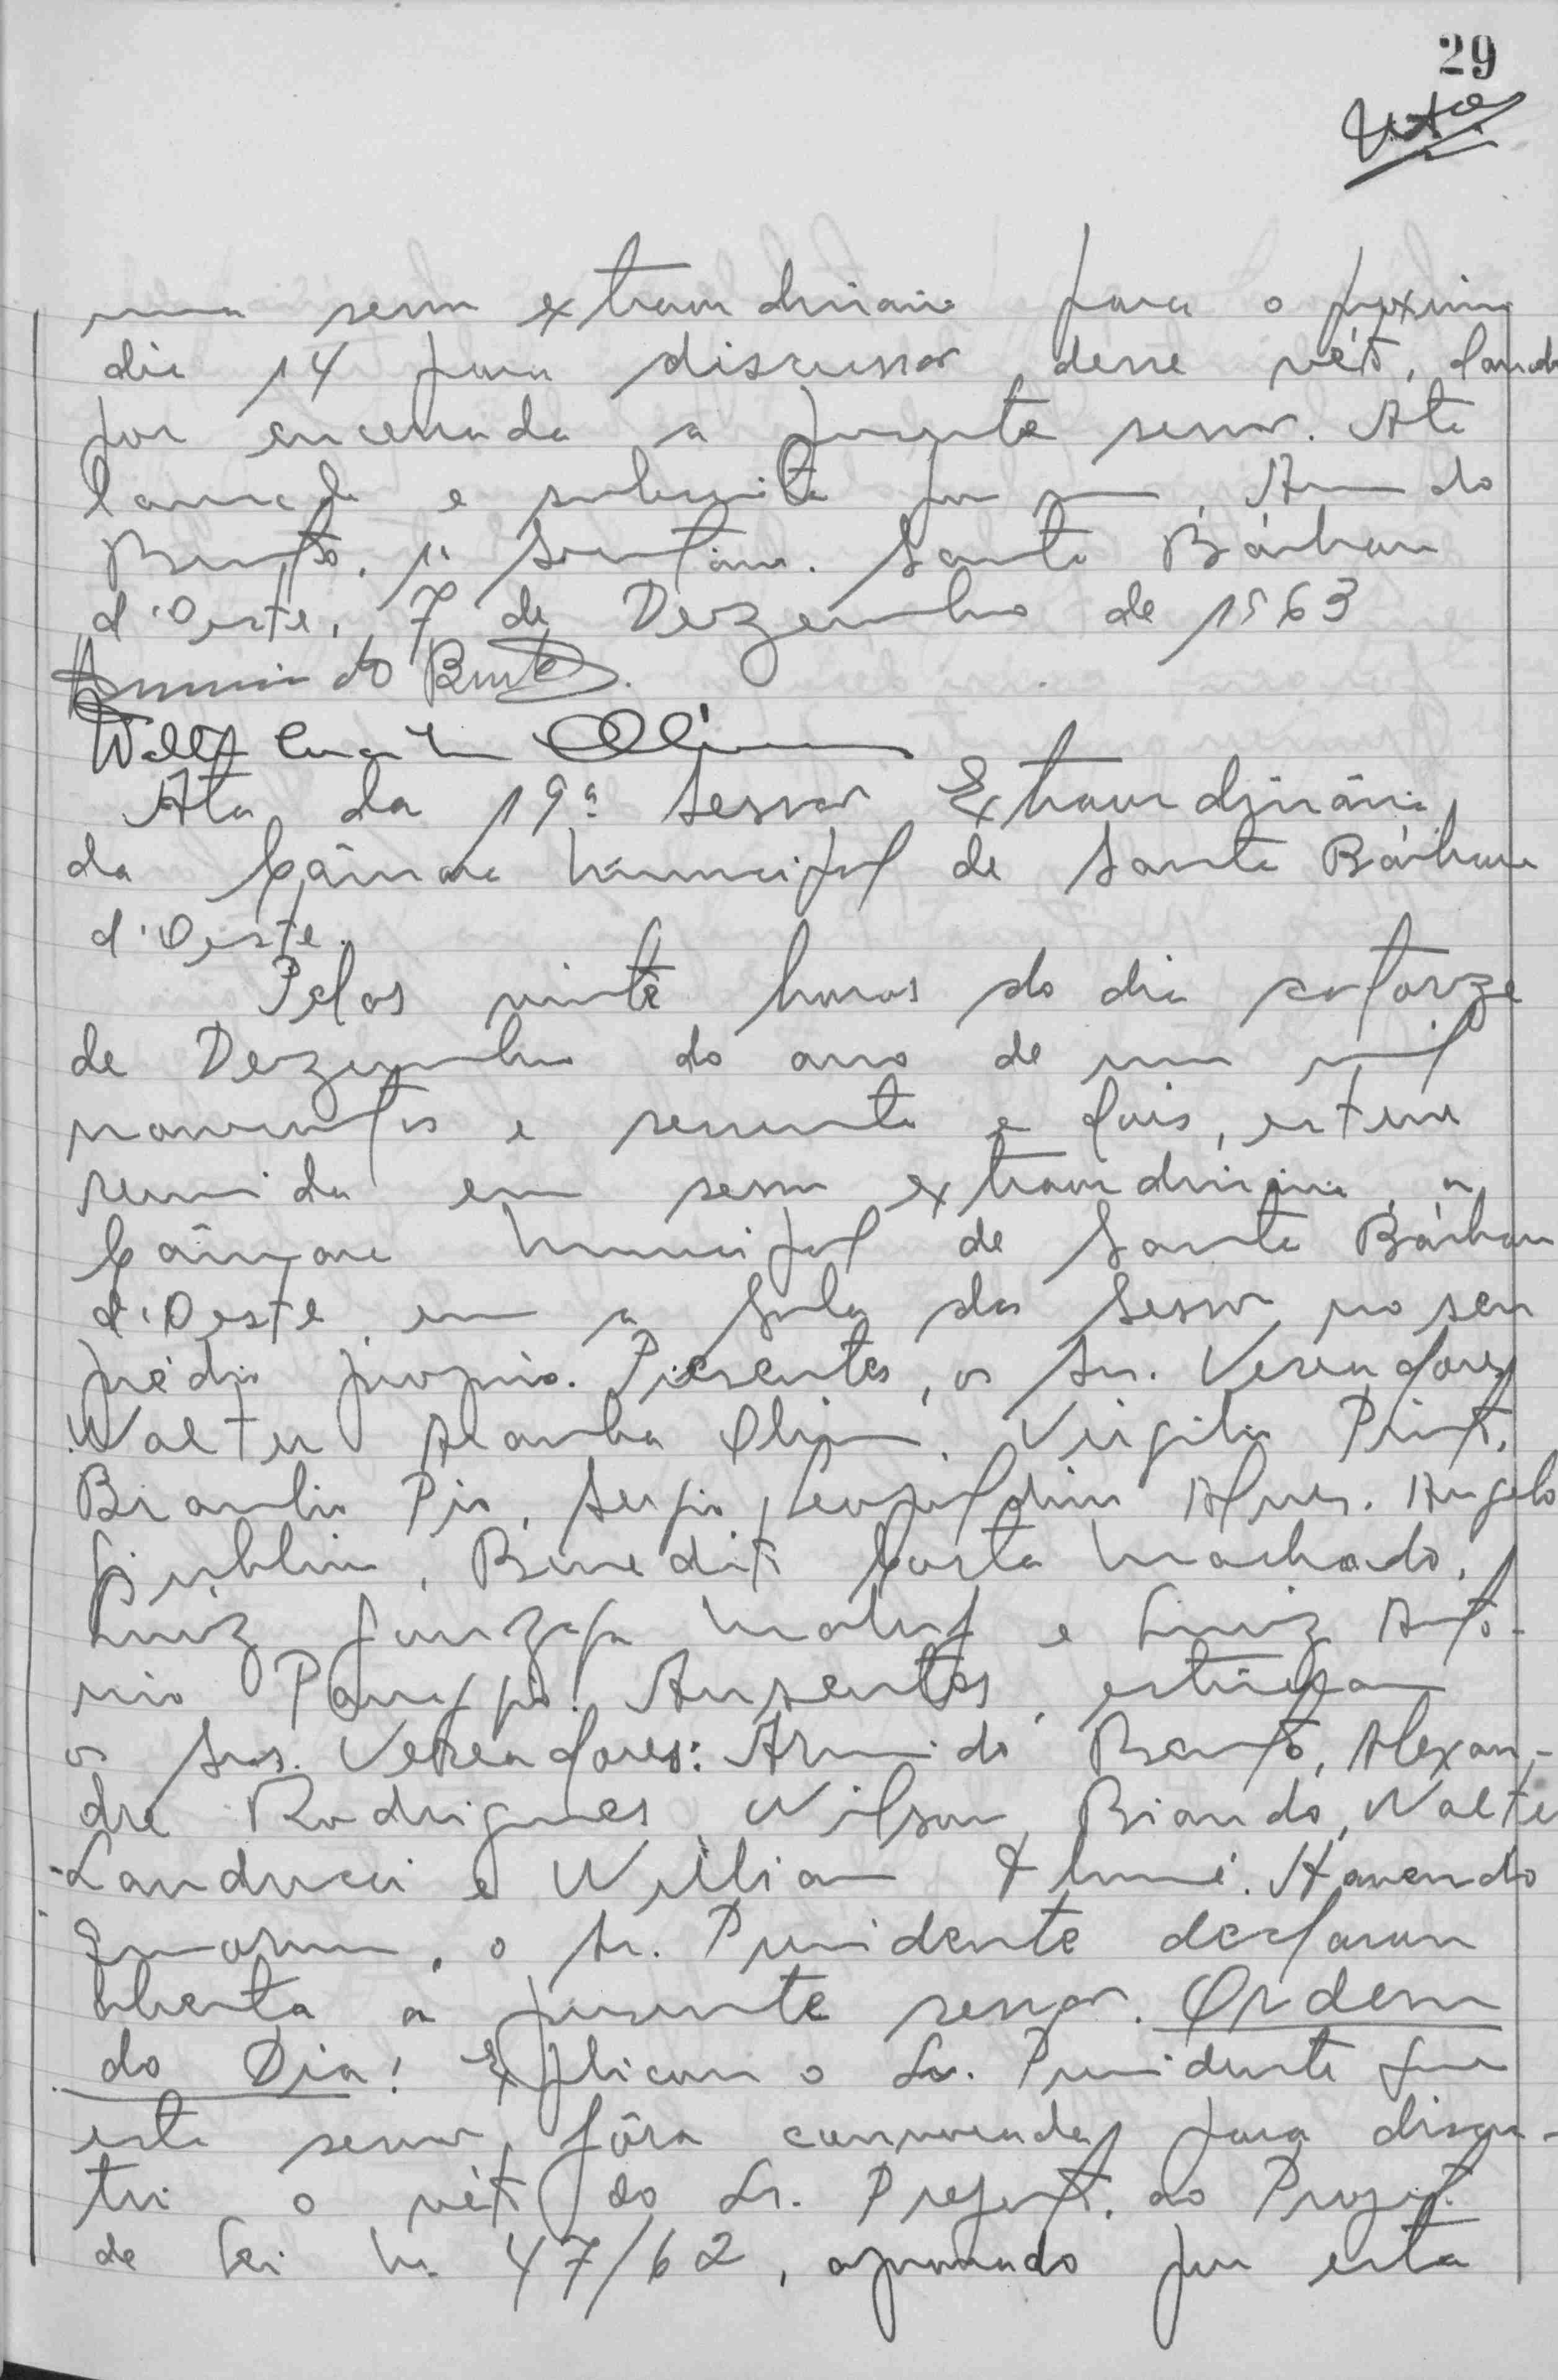 29
uma sessão extraordinária para o próximo
dia 14 para discussão desse véto, dando
por encerrada a presente sessão. Ata
lavrada e subscrita por mim, Armindo
Bento, 1º Secretário. Santa Bárbara
d'Oeste, 7 de Dezembro de 1963
Armindo Bento
Ata da 19ª Sessão Extraordinária
da Câmara Municipal de Santa Bárbara
d'Oeste.
Pelas vinte horas do dia catorze
de Dezembro do ano de um mil
novecentos e sessenta e dois, esteve
reunida em sessão extraordinária, a
Câmara Municipal de Santa Bárbara
d'Oeste, em a Sala das Sessões no seu
prédio proprio. Presentes, os Srs. Vereadores
Walter Landucci
Braulio Pio, Sergio Leopoldino Alves, Angelo
Giubbina, Benedito Costa Machado,
Luiz Gonzaga Maluf e Luiz Antô-
nio Panaggio. Ausentes, estiveram
os Srs. Vereadores: Armindo Bento, Alexan-
dre Rodrigues, Wilson Biando, Walter
Landucci e Willian. Havendo
Quorum, o Sr. Presidente declarou
aberta a presente sessão. Ordem
do Dia: Explicou o Sr. Presidente que
esta sessão, fôra convocada para discu-
tir o véto do Sr. Prefeito, ao Projeto
de Lei n. 47/62, aprovado por esta